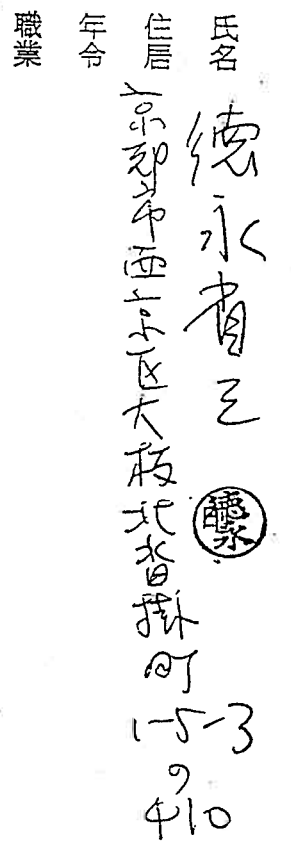 氏名 徳永資三 徳永
住居 京都市西京区大枝北沓掛町1-5-3の410
年令
職業